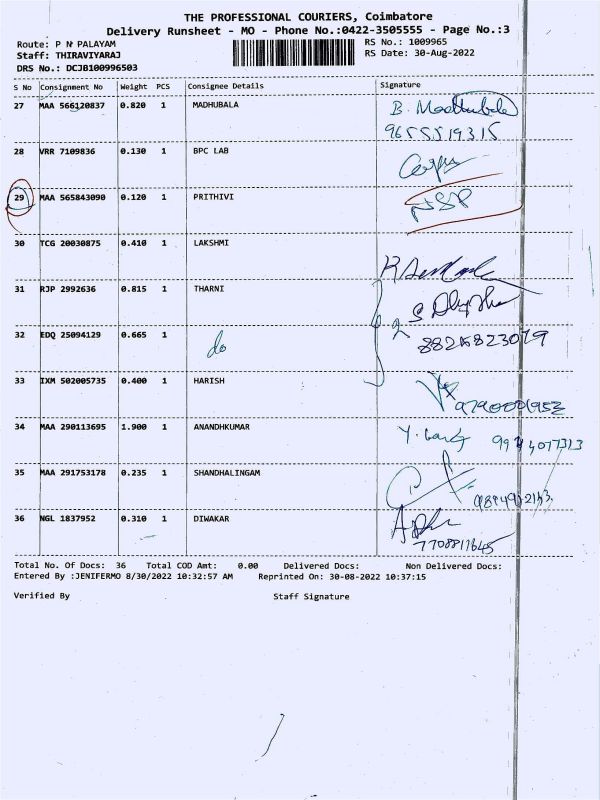 THE PROFESSIONAL COURIERS, Coimbatore
Delivery Runsheet - MO - Phone No.:0422-3505555 - Page No.:3
Route: P N PALAYAM
RS No.: 1009965
Staff: THIRAVIYARAJ
RS Date: 30-Aug-2022
DRS No.: DCJB100996503
S No Consignment No Weight PCS Consignee Details Signature
27 MAA 566120837 0.820 1 MADHUBALA B. Madhubala
9655519315
28 VRR 7109836 0.130 1 BPC LAB
29 MAA 565843090 0.120 1 PRITHIVI NSP
30 TCG 20030875 0.410 1 LAKSHMI
31 RJP 2992636 0.815 1 THARNI
32 EDQ 25094129 0.665 1 do
33 IXM 502005735 0.400 1 HARISH
34 MAA 290113695 1.900 1 ANANDHKUMAR
35 MAA 291753178 0.235 1 SHANDHALINGAM
36 NGL 1837952 0.310 1 DIWAKAR
7708811645
Total No. Of Docs: 36 Total COD Amt: 0.00 Delivered Docs: Non Delivered Docs:
Entered By :JENIFERMO 8/30/2022 10:32:57 AM Reprinted On: 30-08-2022 10:37:15
Verified By Staff Signature